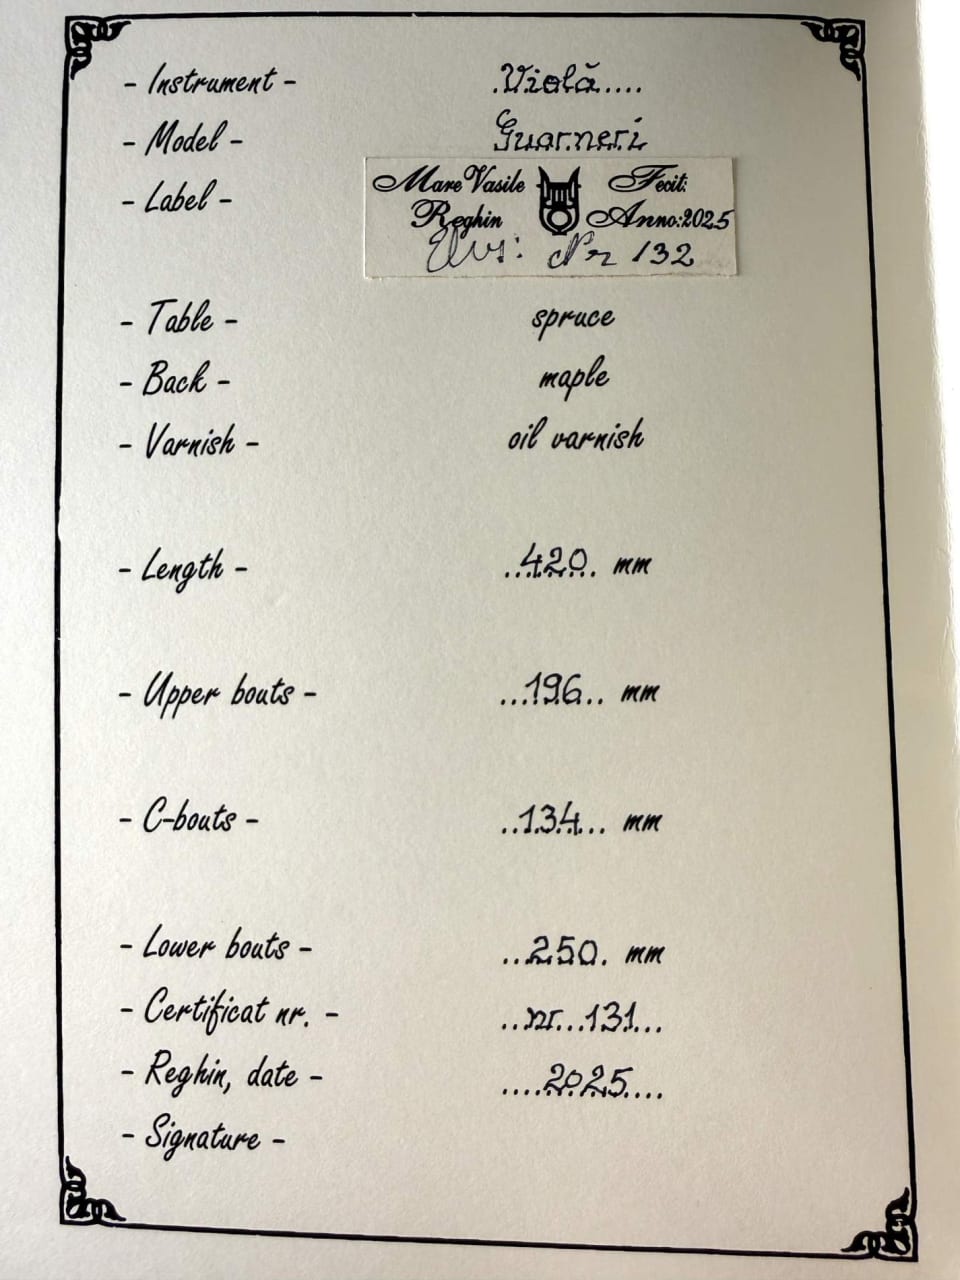 - Instrument - .Violă....
- Model - Guarneri
- Label - Mare Vasile Fecit:
Reghin Anno:2025
Nr 132
- Table - spruce
- Back - maple
- Varnish - oil varnish
- Length - ...420.. mm
- Upper bouts - ...196.. mm
- C-bouts - ..134... mm
- Lower bouts - ..250. mm
- Certificat nr. - ..nr...131...
- Reghin, date - ....2025....
- Signature -